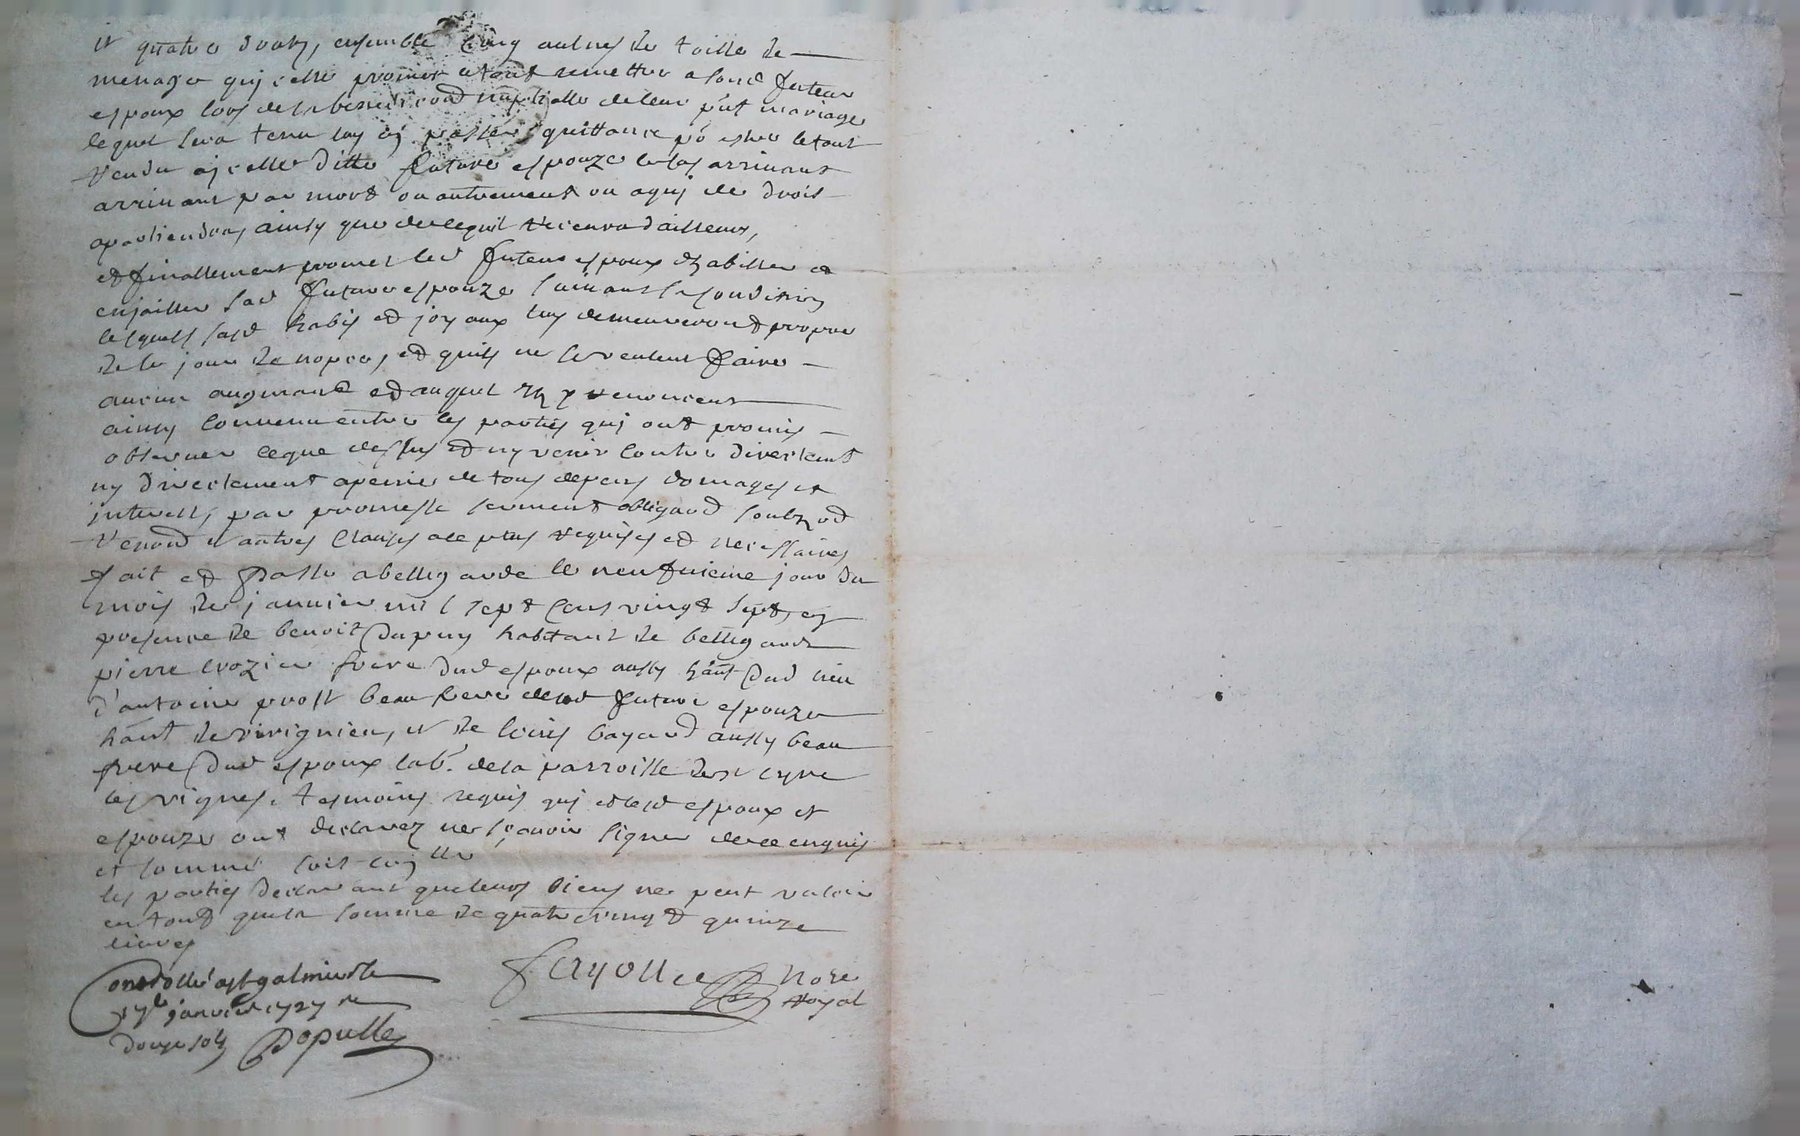 et quatre draps, ensemble cinq aulnes de toille de
menage qu'icelle promet et de remettre a sond futeur
espoux lors de la benediction nuptialle de leur pnt mariage
lequel sera tenu luy en passer quittance po estre le tout
rendu a jcelle ditte future espouze le cas arrivant
arrivant par mort ou autrement ou a quj de droit
apartiendra, ainsy que de ce quil recevra d'ailleurs,
et finallement promet led futeur espoux d'habiller et
enjailler sad future espouze suivant sa condition
lesquels sasd habis et joyaux luy demeureront propre
de le jour de nopces, et quils ne se veulent faire
aucun augment et auquel ils y renoncent
ainsy convenu entre les parties quj ont promis
observer ce que dessus et ny venir contre directemt
ny directement a peine de tous depens domages et
jnterests, par promesse serment obligaõn soubz
renoõn et autres clauses a ce plus requises et necessaires
fait et passé a bellegarde le neufuieme jour du
mois de januier mil sept cens vingt sept, en
presence de benoit Dupuy habitant de bellegarde
pierre crozier frere dud espoux aussy hant dud lieu
d'antoine prost beau frere de lad future espouze
hant de rivignieu, et de louis bayard aussy beau
frere dud espoux lab. de la parroisse de st cyre
les vignes, tesmoins requis quj et lesd espoux et
espouze ont declarez ne sçavoir signer de ce enquis
et sommé
les parties declarant que leurs biens ne peut valoir
en tout que la somme de quatre vingt quinze
livres
Controllé a st galmier le
17e janvier 1727 re
douze sols Populle
fayolle Nore
Royal